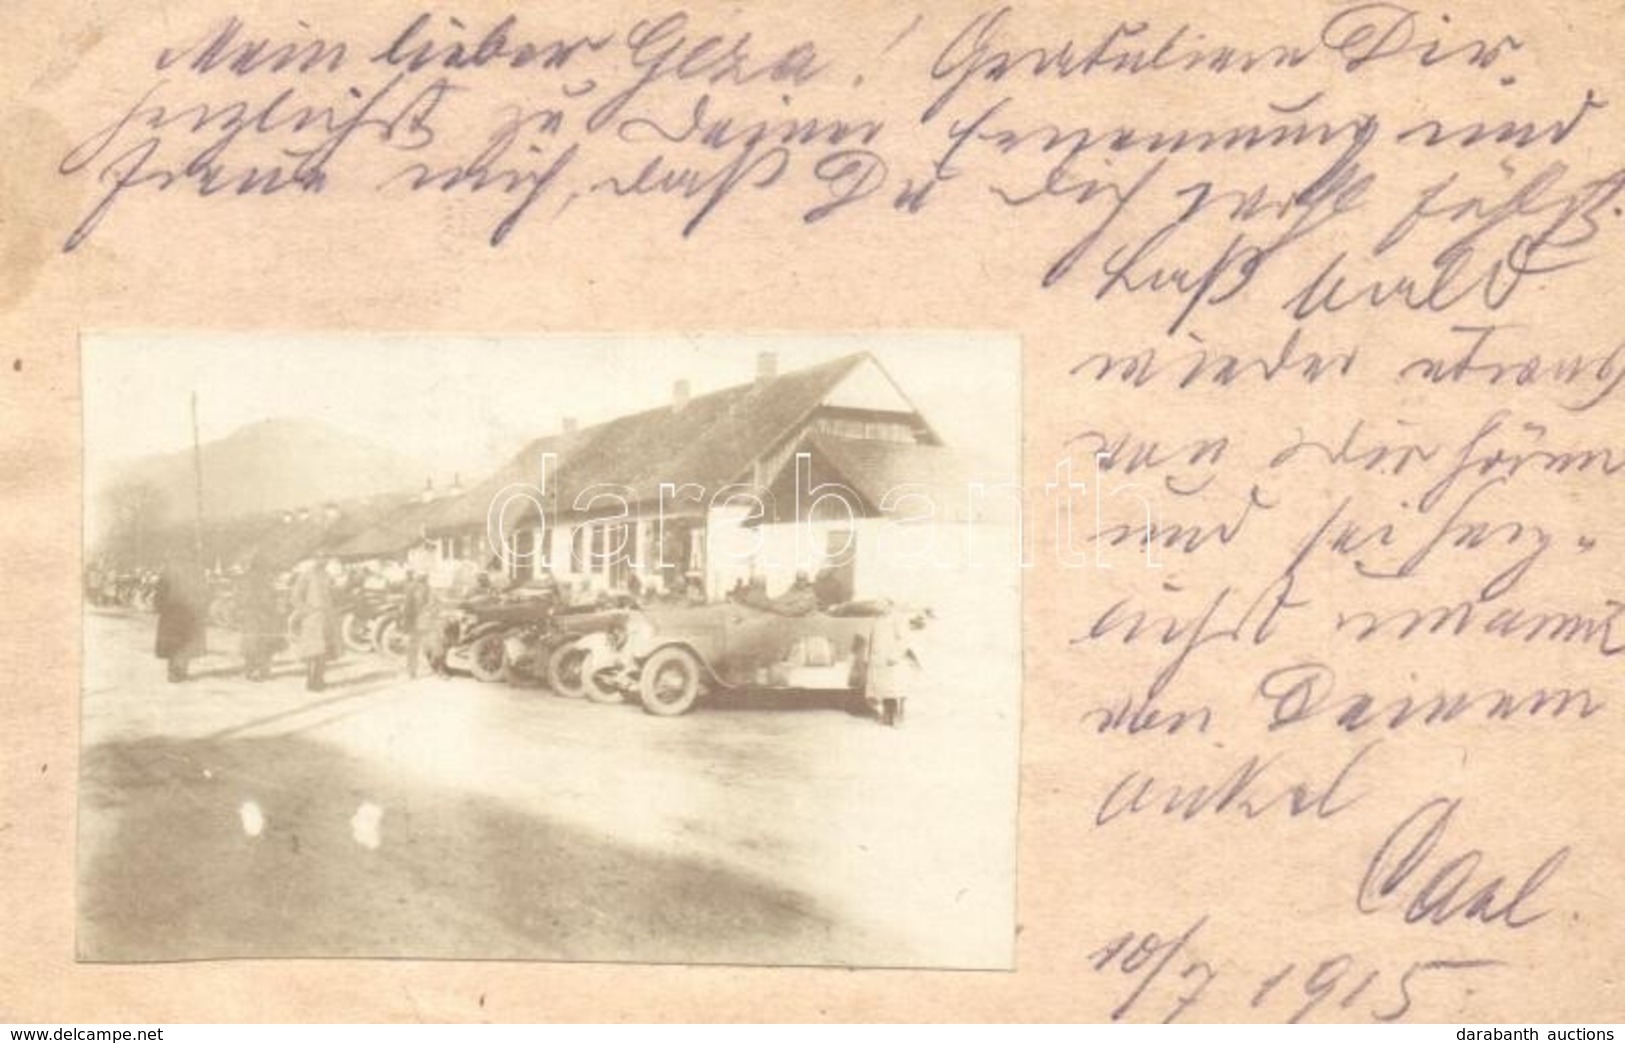 Mein lieber Geza! Gratuliere Dir
herzlichst zu Deiner Ernennung und
freue mich, daß Du Dich wohl fühlst.
Laß bald
wieder etwas
von Dir hören
und sei herz-
lichst umarmt
von Deinem
Onkel
Carl.
10/7 1915
darabanth
delcampe.net
darabanth auctions